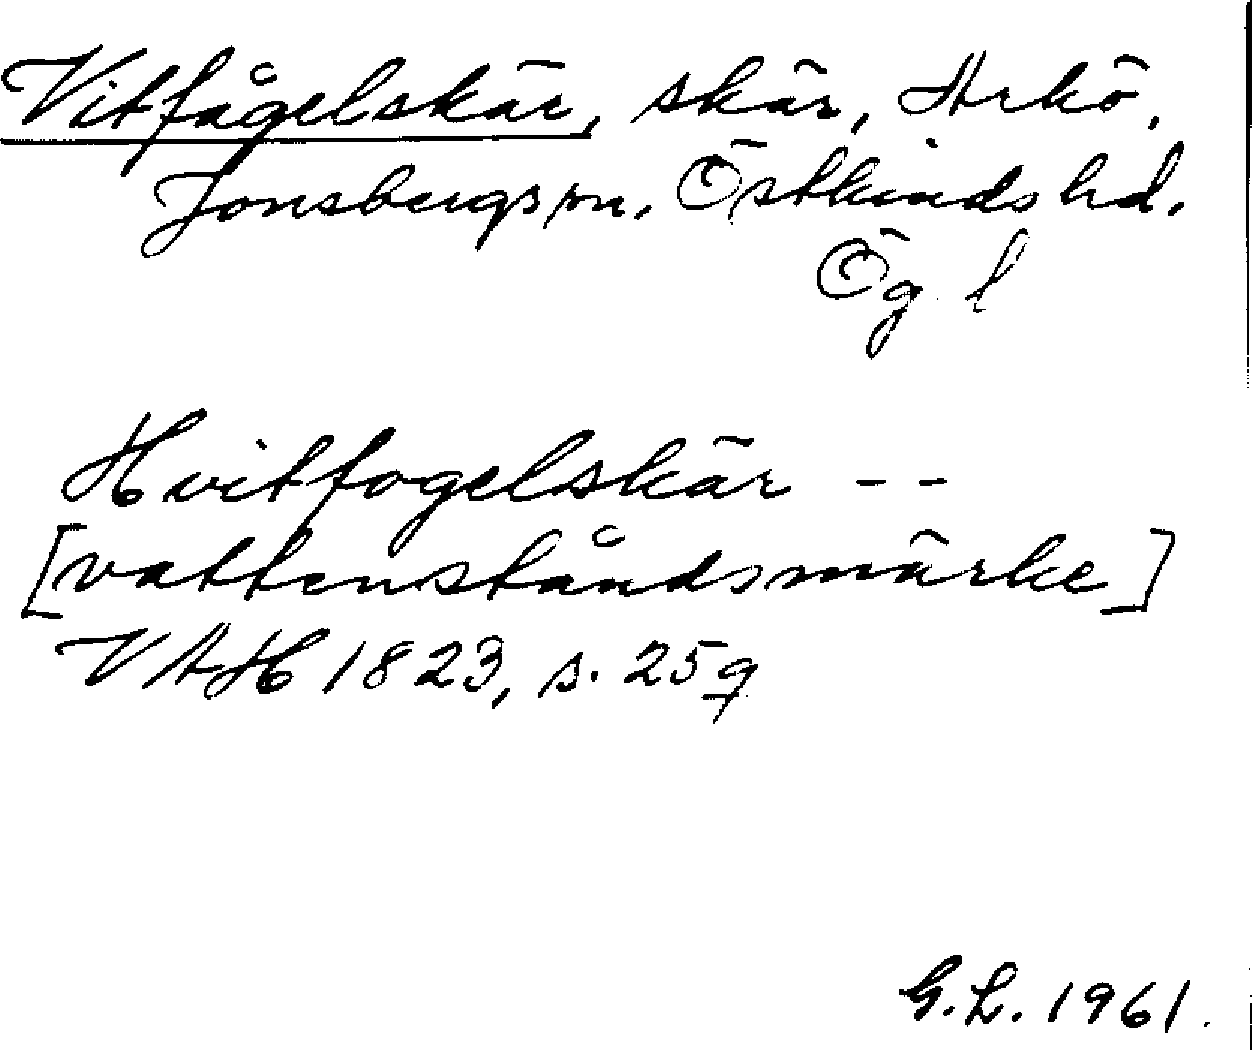 Vitfågelskär, skär, Arkö,
Jonsbergs sn, Östkinds hd,
Ög l
Hvitfogelskär --
[vattenståndsmärke]
VAH 1823, s. 259
G.L. 1961.